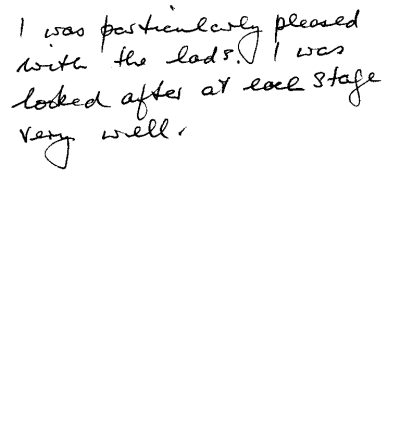 I was particularly pleased
with the lads. I was
looked after at each stage
very well.